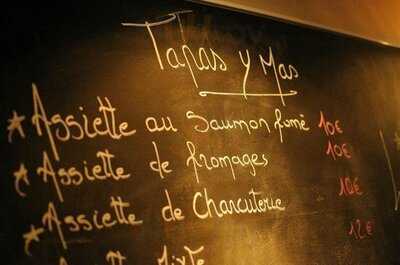 Tapas y Mas
* Assiette au Saumon fumé 10€
* Assiette de fromages 10€
* Assiette de Charcuterie 10€
12€